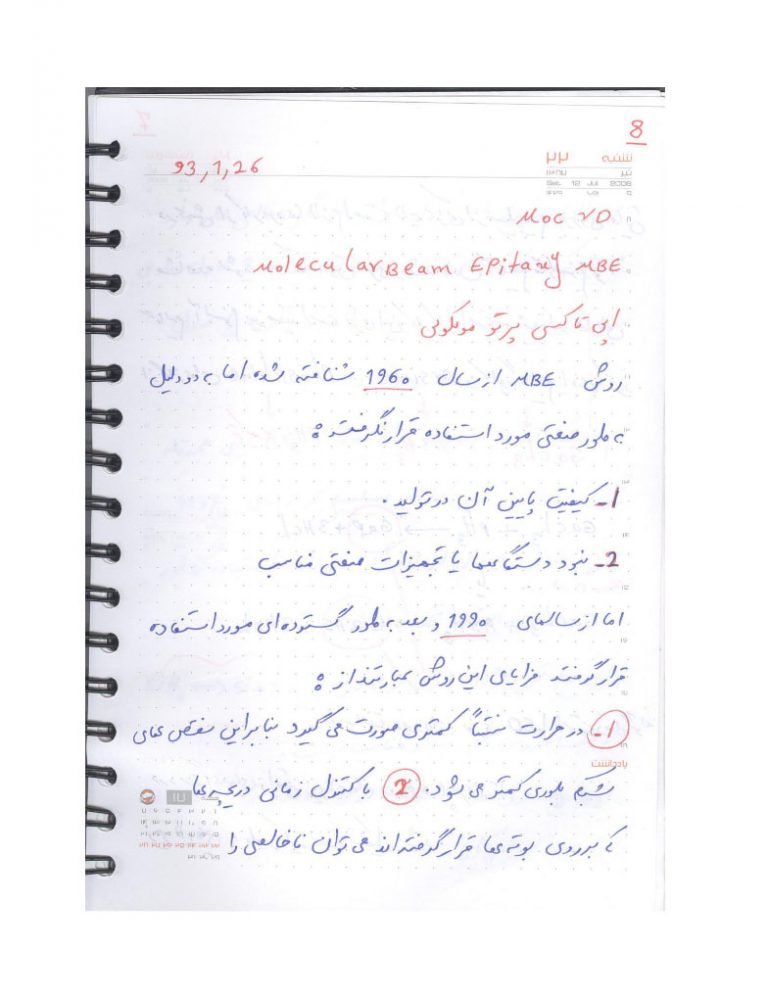 8
شنبه ۲۲
تیر
Sat. 12 Jul 2008
93,1,26
MOCVD
Molecular Beam Epitaxy MBE
اپی تاکسی پرتو مولکولی
روش MBE از سال 1960 شناخته شده اما به دو دلیل
به طور صنعتی مورد استفاده قرار نگرفت :
1- کیفیت پایین آن در تولید .
2- نبود دستگاهها یا تجهیزات صنعتی مناسب
اما از سالهای 1990 و بعد به طور گسترده ای مورد استفاده
قرار گرفتند مزایای این روش عبارتند از :
1- در حرارت نسبتاً کمتری صورت می گیرد بنابراین نقص های
بلوری کمتر می شود. 2 با کنترل زمانی دریچه ها
یادداشت
که بر روی بوته ها قرار گرفته اند می توان ناخالصی را